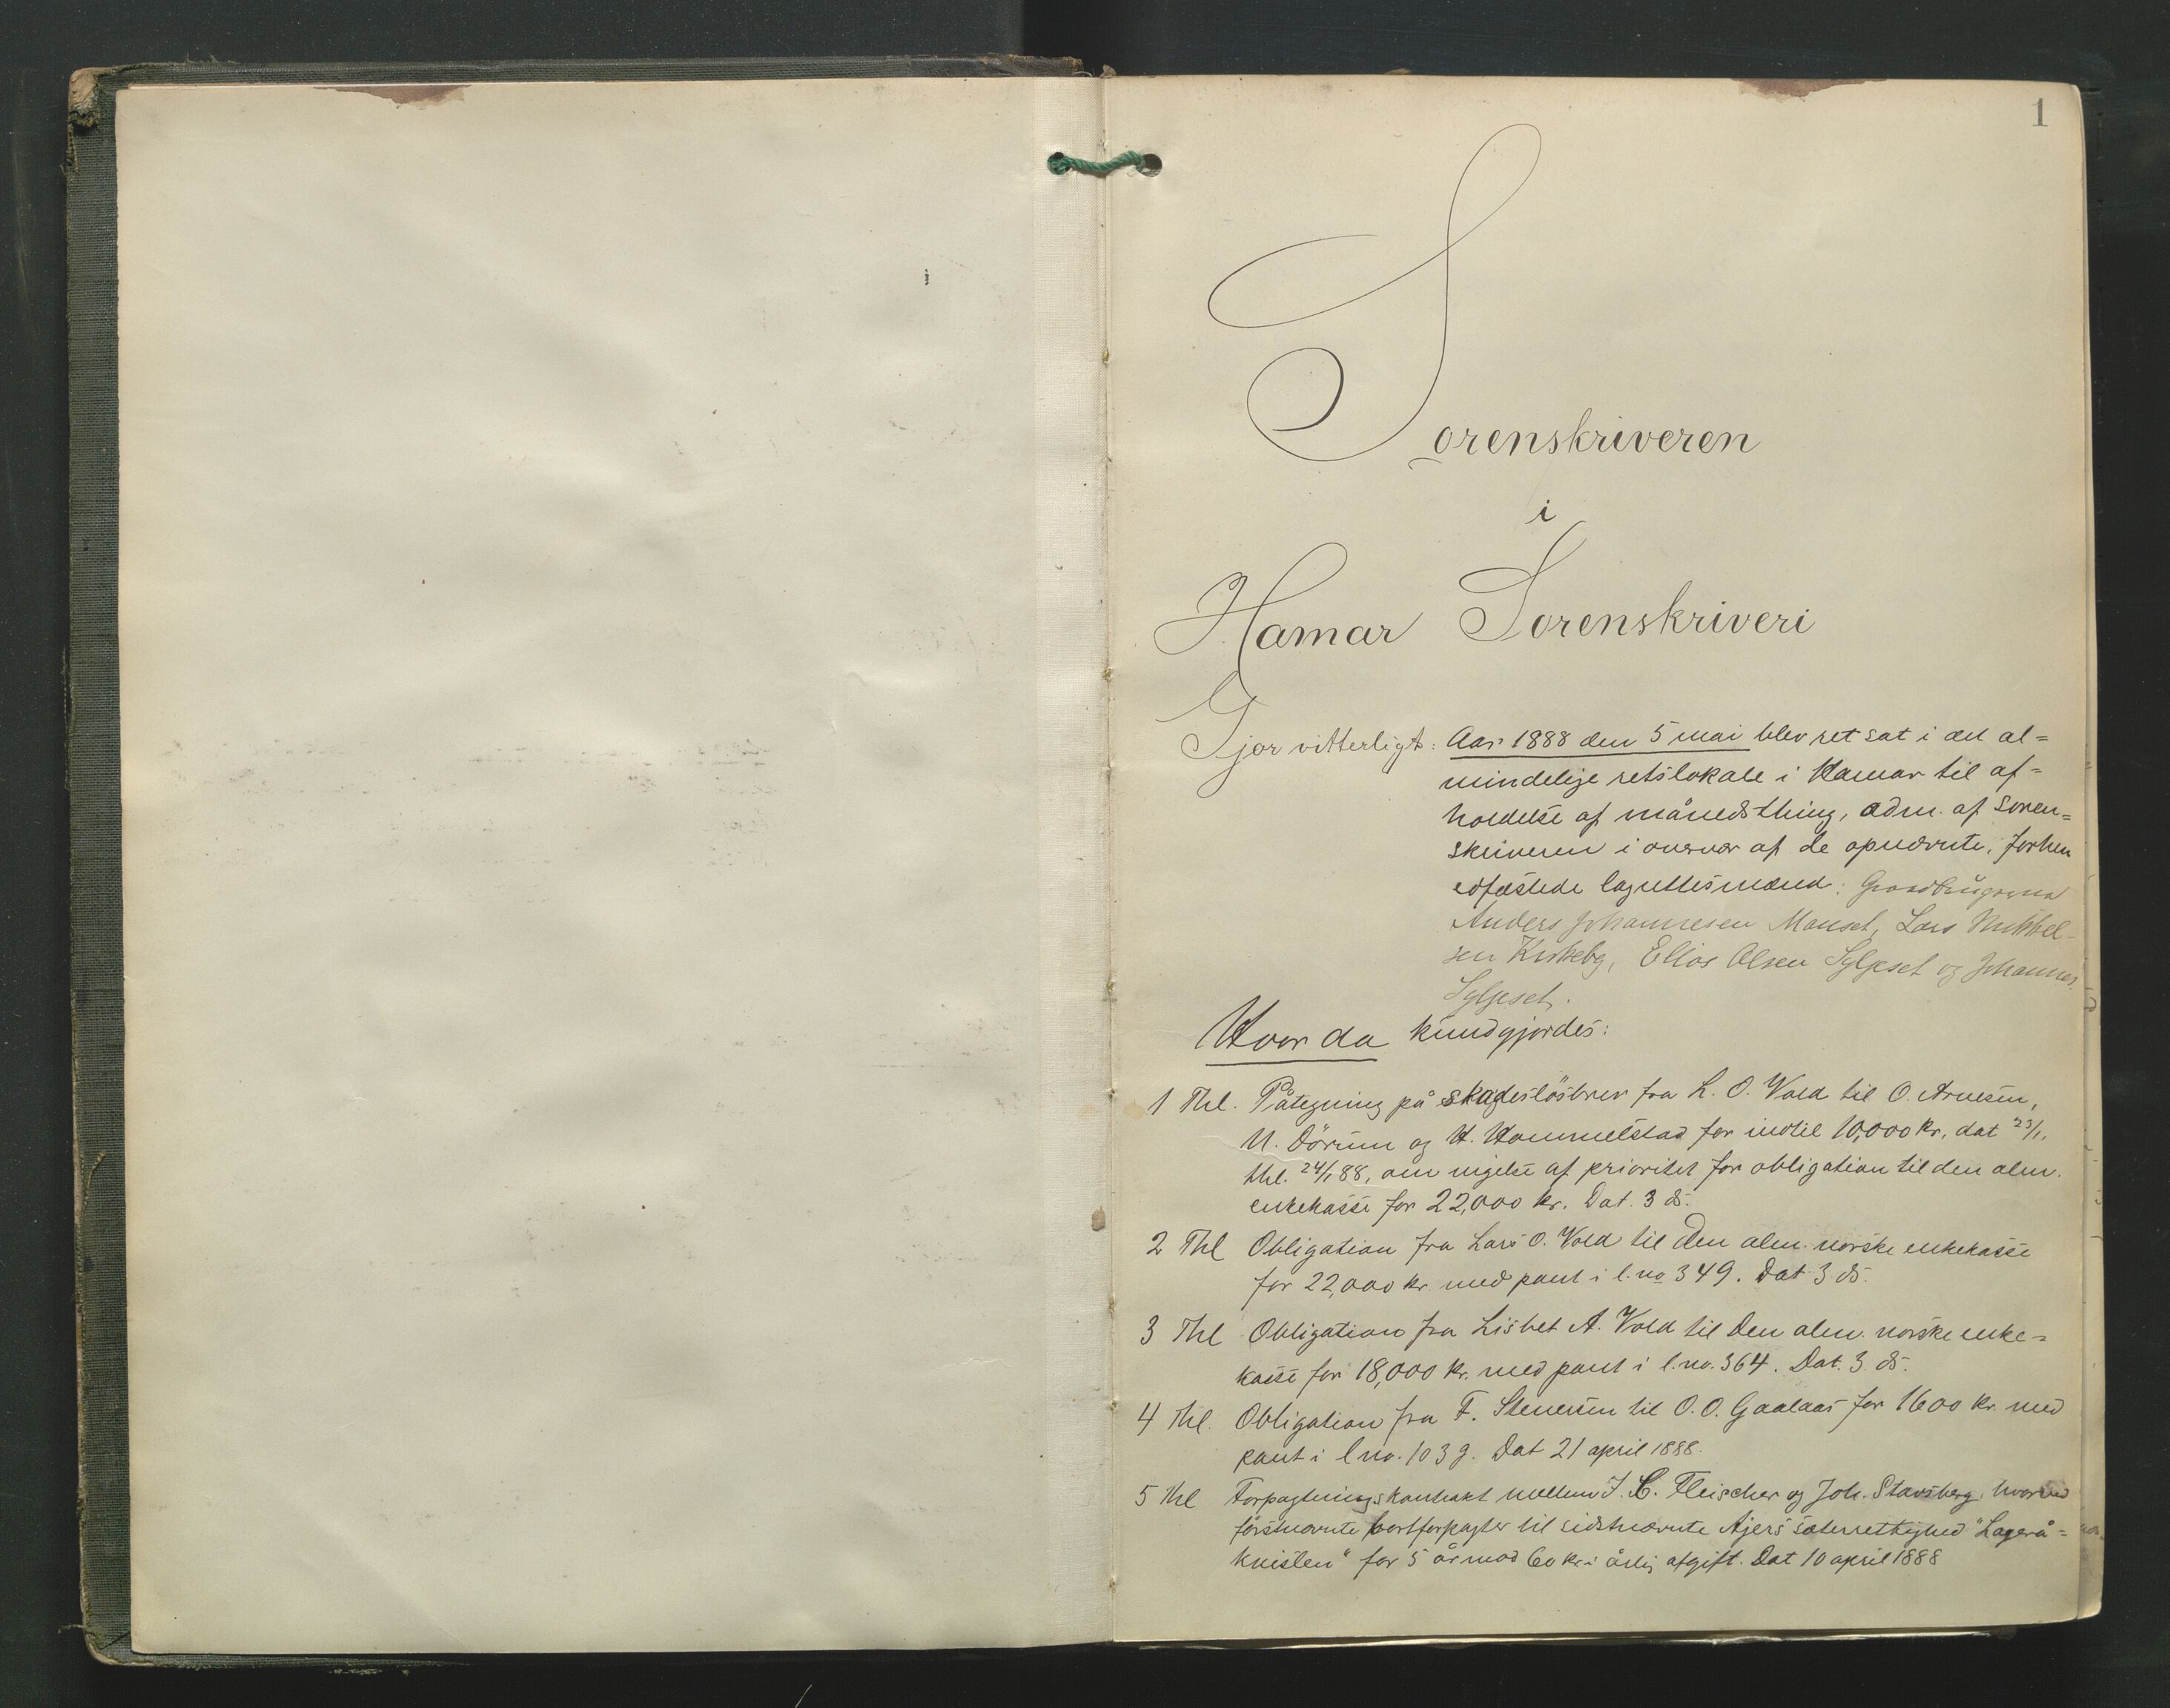 1
Sorenskriveren
i
Hamar Sorenskriveri
Gjør vitterligt: Aar 1888 den 5 mai blev ret sat i det al=
mindelige retslokale i Hamar til af=
holdelse af månedsthing, adm. af soren=
skriveren i overvær af de opnævnte, forhen
edfæstede lagrettesmænd: Gaardbrugerne
Anders Johannesen Manset, Lars Mikkel-
sen Kirkeby, Elias Olsen Sylseset og Johannes
Sylseset.
Hvor da kundgjordes:
1 Thl. Påtegning på skadesløsbrev fra L. O. Vold til O. Arnesen,
N. Dørum og H. Hommelstad for indtil 10,000 kr, dat 23/1,
thl. 24/1 88, om vigelse af prioritet for obligation til den alm.
enkekasse for 22,000 kr. Dat. 3 ds.
2 Thl Obligation fra Lars O. Vold til Den alm. norske enkekasse
for 22,000 kr. med pant i l. no 349. Dat 3 ds.
3 Thl Obligation fra Lisbet A. Vold til Den alm. norske enke=
kasse for 18,000 kr. med pant i l. no. 364. Dat. 3. ds.
4 Thl. Obligation fra F. Stenersen til O. O. Gaalaas for 1600 kr. med
pant i l no. 103 g. Dat 21 april 1888.
5 Thl Forpagtningskontrakt mellem J. C. Fleischer og Joh. Stavsberg, hvorved
førstnævnte bortforpagter til sidstnævnte Ajers sæterrettighed "Lagerå=
kvislen" for 5 år mod 60 kr. i årlig afgift. Dat 10 april 1888